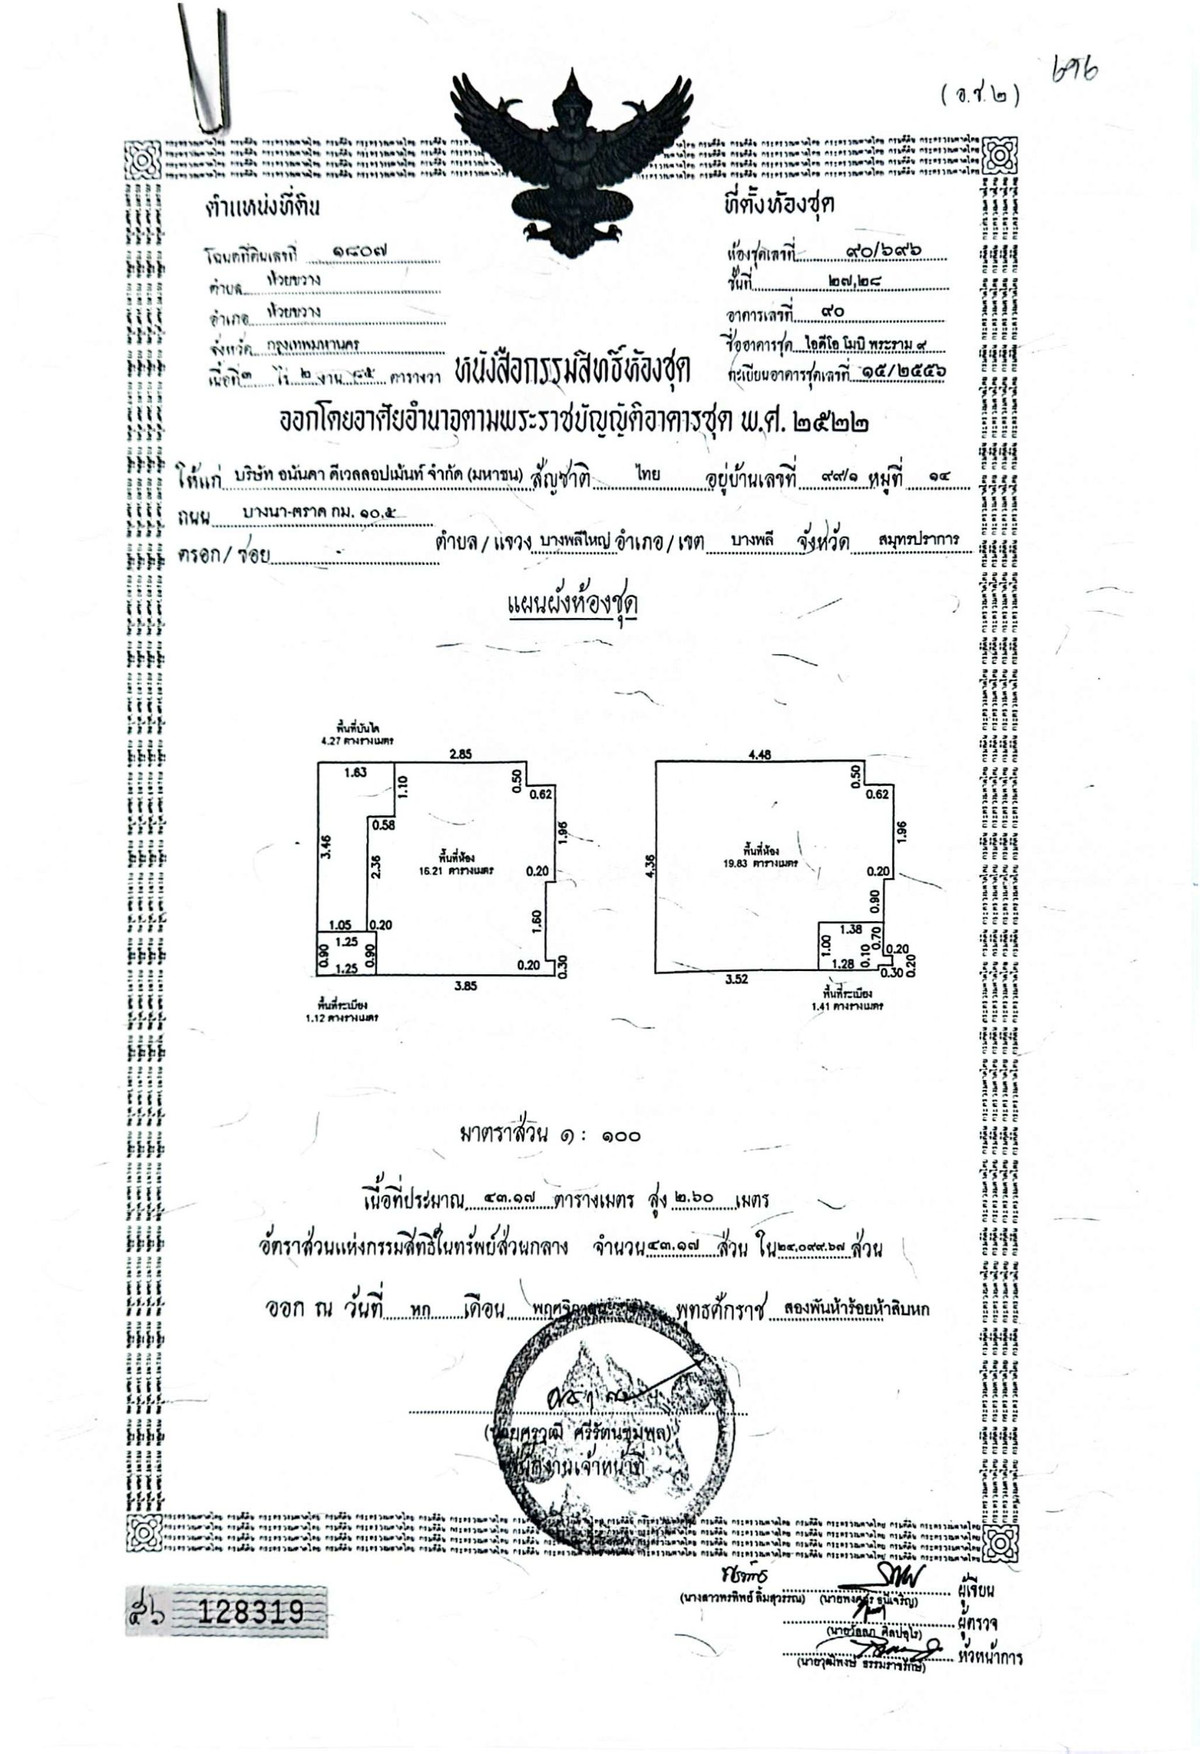 ๖๙๖
( อ.ช.๒ )
ตำแหน่งที่ดิน
โฉนดที่ดินเลขที่ ๑๘๐๗
ตำบล ห้วยขวาง
อำเภอ ห้วยขวาง
จังหวัด กรุงเทพมหานคร
เนื้อที่ ๓ ไร่ ๒ งาน ๘๕ ตารางวา
ที่ตั้งห้องชุด
ห้องชุดเลขที่ ๙๐/๖๙๖
ชั้นที่ ๒๗,๒๘
อาคารเลขที่ ๙๐
ชื่ออาคารชุด ไอดีโอ โมบิ พระราม ๙
ทะเบียนอาคารชุดเลขที่ ๑๕/๒๕๕๖
หนังสือกรรมสิทธิ์ห้องชุด
ออกโดยอาศัยอำนาจตามพระราชบัญญัติอาคารชุด พ.ศ. ๒๕๒๒
ให้แก่ บริษัท อนันดา ดีเวลลอปเม้นท์ จำกัด (มหาชน) สัญชาติ ไทย อยู่บ้านเลขที่ ๙๙/๑ หมู่ที่ ๑๔
ถนน บางนา-ตราด กม. ๑๐.๕
ตรอก/ซอย - ตำบล/แขวง บางพลีใหญ่ อำเภอ/เขต บางพลี จังหวัด สมุทรปราการ
แผนผังห้องชุด
พื้นที่บันได
4.27 ตารางเมตร
1.63
2.85
1.10
0.50
0.62
0.58
3.46
2.36
1.96
พื้นที่ห้อง
16.21 ตารางเมตร
0.20
1.60
1.05
0.20
1.25
0.90
0.90
1.25
0.20
0.30
3.85
พื้นที่ระเบียง
1.12 ตารางเมตร
4.48
0.50
0.62
1.96
4.36
พื้นที่ห้อง
19.83 ตารางเมตร
0.20
0.90
1.38
0.70
1.00
0.10
0.20
0.20
1.28
0.30
3.52
พื้นที่ระเบียง
1.41 ตารางเมตร
มาตราส่วน ๑ : ๑๐๐
เนื้อที่ประมาณ ๔๓.๑๗ ตารางเมตร สูง ๒.๖๐ เมตร
อัตราส่วนแห่งกรรมสิทธิ์ในทรัพย์ส่วนกลาง จำนวน ๔๓.๑๗ ส่วน ใน ๒๔,๐๙๙.๖๗ ส่วน
ออก ณ วันที่ หก เดือน พฤศจิกายน พุทธศักราช สองพันห้าร้อยห้าสิบหก
(นายศรวุฒิ ศรีรัตนชุมพล)
พนักงานเจ้าหน้าที่
๕๖ 128319
(นางสาวพรทิพย์ ลิ้มสุวรรณ)
ผู้เขียน
ผู้ตรวจ
หัวหน้าการ